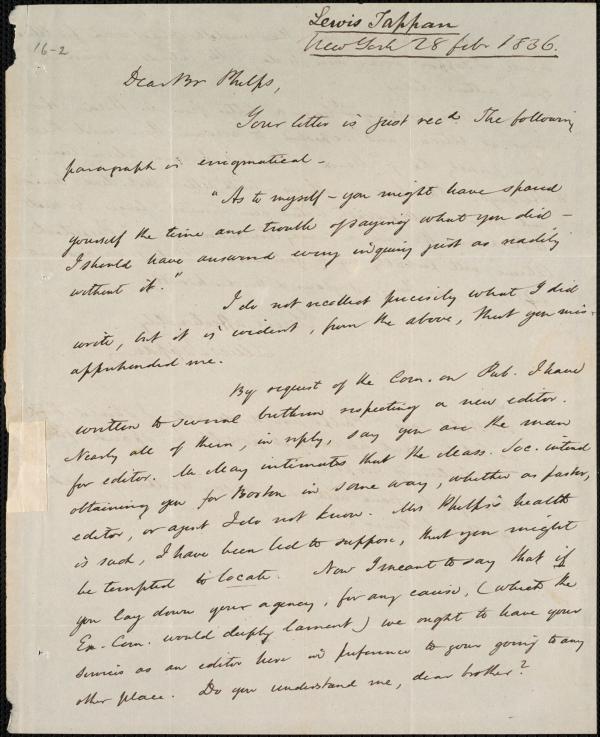 Lewis Tappan
New York 28 feb. 1836.
16-2
Dear Br Phelps,
Your letter is just recd. The following
paragraph is enigmatical –
"As to myself – you might have spared
yourself the time and trouble of saying what you did –
I should have answered every inquiry just as readily
without it."
I do not recollect precisely what I did
write, but it is evident, from the above, that you mis-
apprehended me.
By request of the Com. on Pub. I have
written to several brethren respecting a new editor.
Nearly all of them, in reply, say you are the man
for editor. Mr May intimates that the Mass. Soc. intend
obtaining you for Boston in some way, whether as pastor,
editor, or agent I do not know. Mrs Phelps's health
is such, I have been led to suppose, that you might
be tempted to locate. Now I meant to say that if
you lay down your agency, for any cause, (which the
Ex. Com. would deeply lament) we ought to have your
services as an editor here in preference to your going to any
other place. Do you understand me, dear brother?